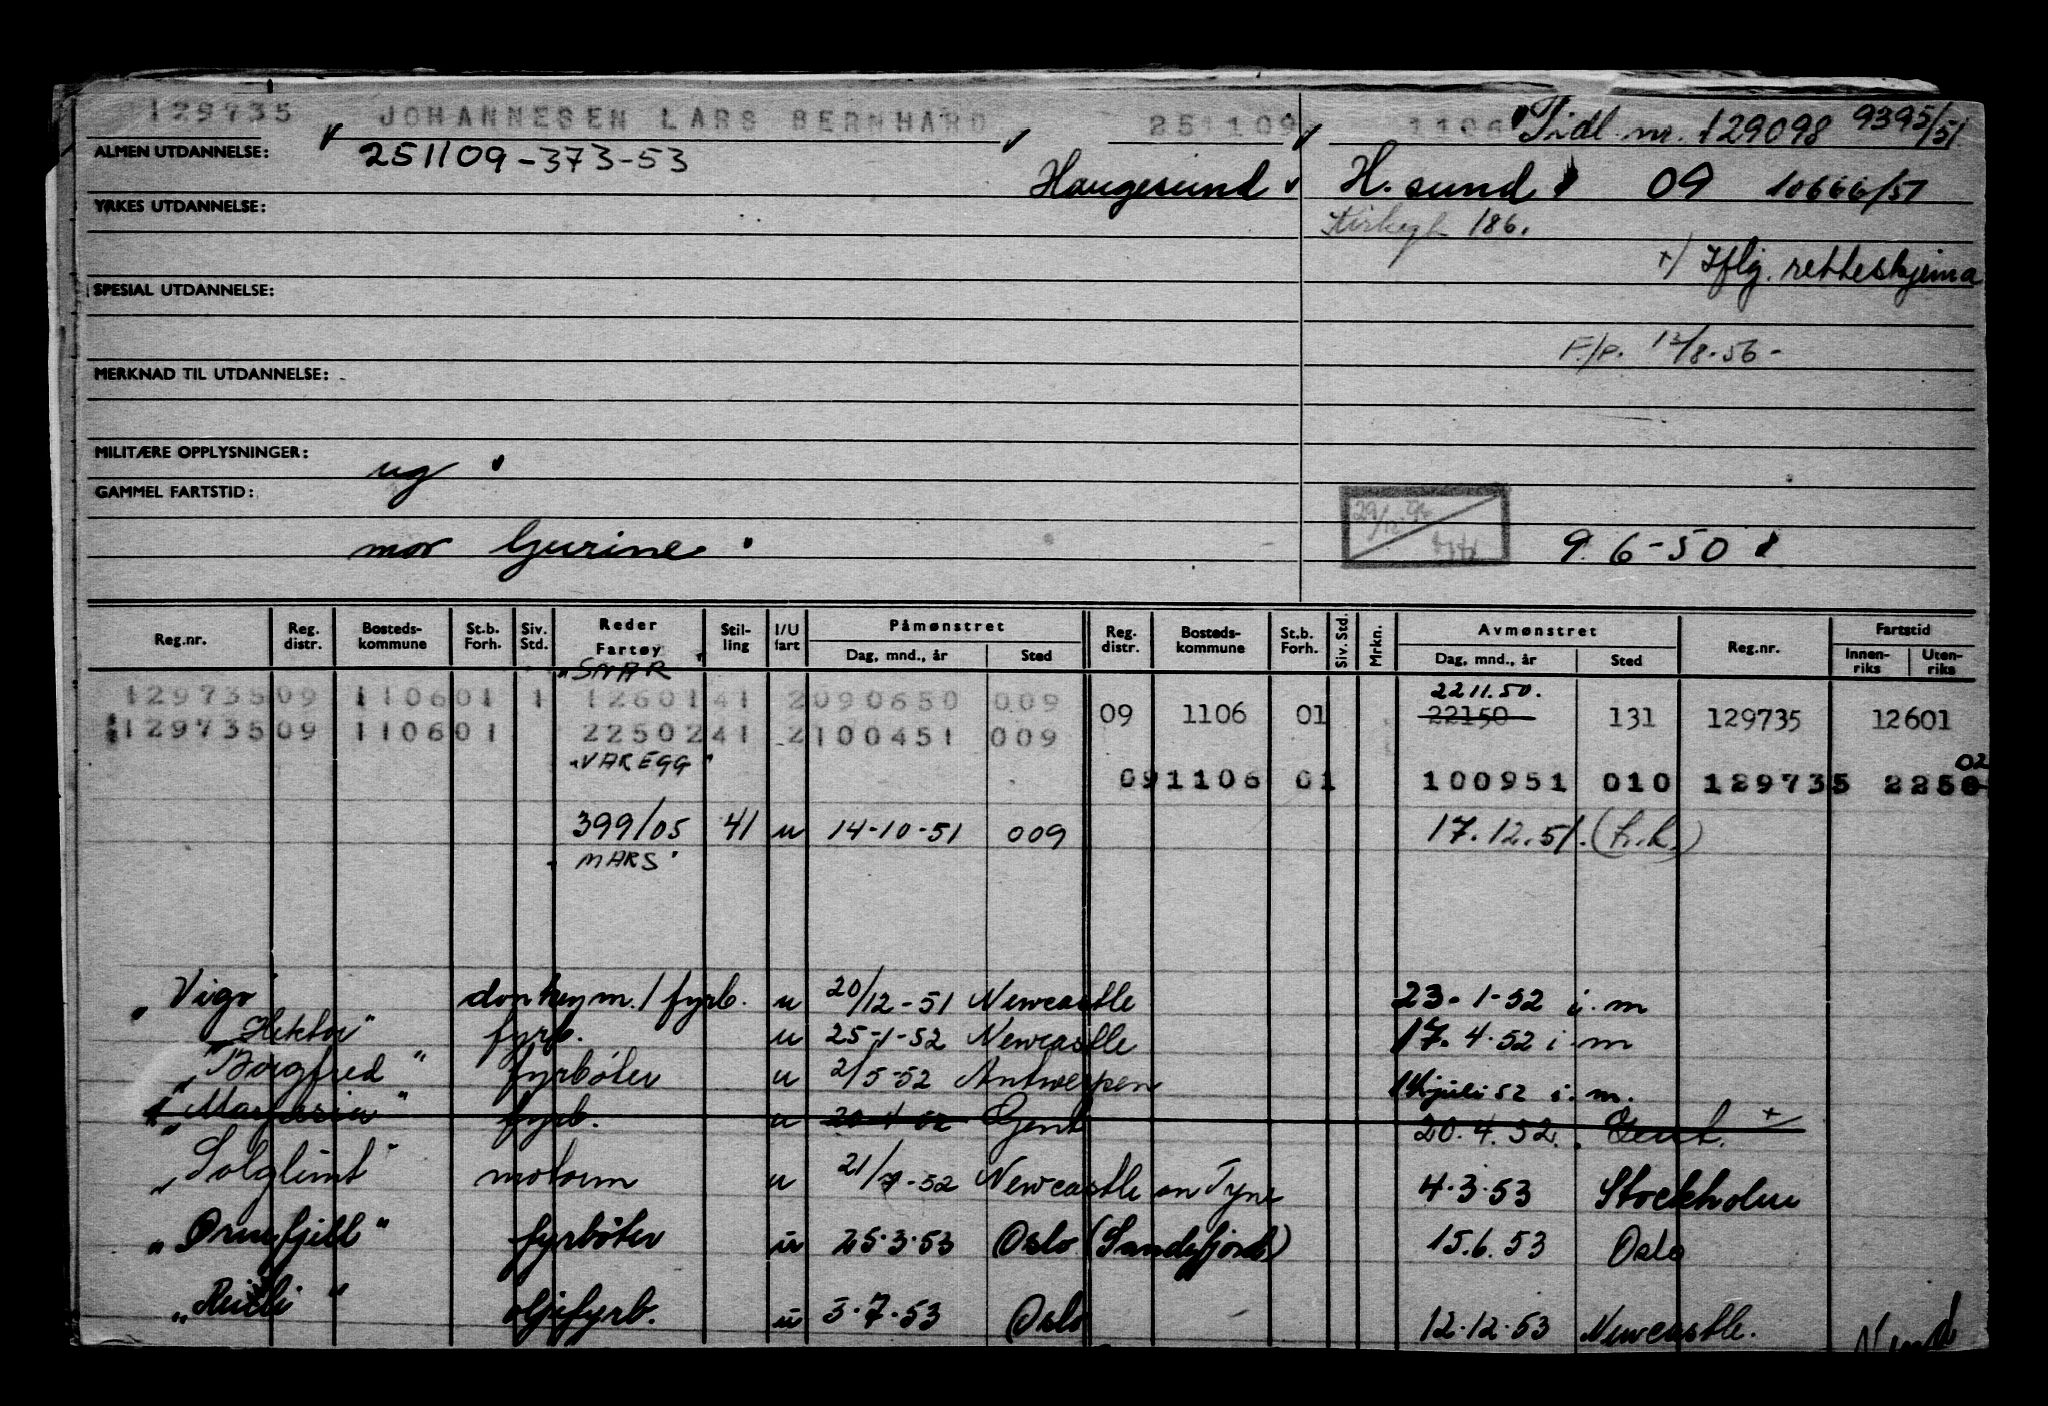 129735 JOHANNESEN LARS BERNHARD 251109 1106 Tidl. nr. 129098 9395/51
ALMEN UTDANNELSE: 251109-373-53
Haugesund H.sund 09 10666/51
YRKES UTDANNELSE:
Kirkegt 186.
+) Iflg. retteskjema
SPESIAL UTDANNELSE:
F/p. 13/8-56-
MERKNAD TIL UTDANNELSE:
MILITÆRE OPPLYSNINGER: ug
GAMMEL FARTSTID:
mor Gurine 9.6-50
Reg.nr. Reg. distr. Bosteds-kommune St.b. Forh. Siv. Std. Reder Fartøy Stil-ling I/U fart Påmønstret Dag, mnd., år Sted Reg. distr. Bosteds-kommune St.b. Forh. Siv. Std. Mrkn. Avmønstret Dag, mnd., år Sted Reg.nr. Fartstid Innen-riks Uten-riks
"SNAR"
129735 09 1106 01 1 12601 41 2 090650 009
2211.50.
09 1106 01 22150 131 129735 12601
129735 09 1106 01 22502 41 2 100451 009
"VAREGG"
09 1106 01 100951 010 129735 2250 02
399/05 41 u 14-10-51 009 17.12.51. (h.k.)
"MARS"
"Vigo" donkeym./fyrb. u 20/12-51 Newcastle 23-1-52 i.m
"Hektor" fyrb. u 25-1-52 Newcastle 17.4.52 i.m
"Borgfred" fyrbøter u 2/5-52 Antwerpen 14 juli 52 i.m.
fyrb. u Gent 20.4.52. Gent. +
"Solglimt" motorm u 21/7-52 Newcastle on Tyne 4.3.53 Stockholm
"Ørnefjell" fyrbøter u 25.3.53 Oslo (Sandefjord) 15.6.53 Oslo
oljefyrb. u 3.7.53 Oslo 12.12.53 Newcastle.